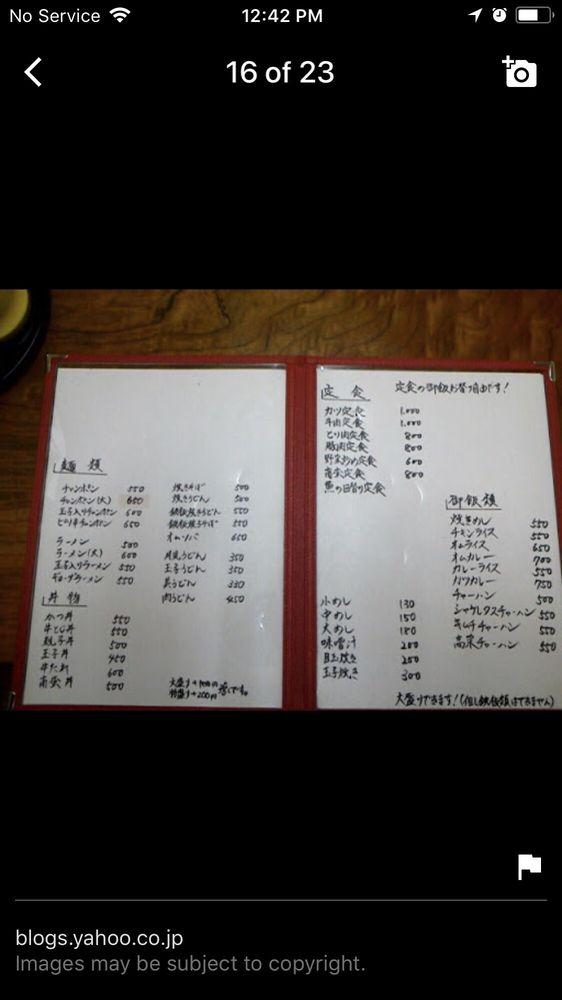 No Service
12:42 PM
16 of 23
麺類
チャンポン 550
チャンポン(大) 650
玉子入りチャンポン 600
ピリ辛チャンポン 650
ラーメン 500
ラーメン(大) 600
玉子入りラーメン 550
ギョーザラーメン 550
焼きそば 500
焼きうどん 500
鉄板焼きうどん 550
鉄板焼きそば 550
オムソバ 650
月見うどん 350
玉子うどん 350
具うどん 330
肉うどん 450
丼物
かつ丼 550
牛とじ丼 550
親子丼 500
玉子丼 450
牛たれ 600
500
大盛り+100円
特盛り+200円
定食
定食の御飯お替り自由です!
カツ定食 1,000
牛肉定食 1,000
とり肉定食 800
豚肉定食 800
野菜炒め定食 600
定食 800
魚の日替り定食
御飯類
焼きめし 550
チキンライス 550
オムライス 650
オムカレー 700
カレーライス 550
カツカレー 750
チャーハン 500
シャウレタスチャーハン 550
キムチチャーハン 550
高菜チャーハン 550
小めし 130
中めし 150
大めし 180
味噌汁 200
目玉焼き 200
玉子焼き 300
大盛りできます!(但し鉄板類はできません)
blogs.yahoo.co.jp
Images may be subject to copyright.